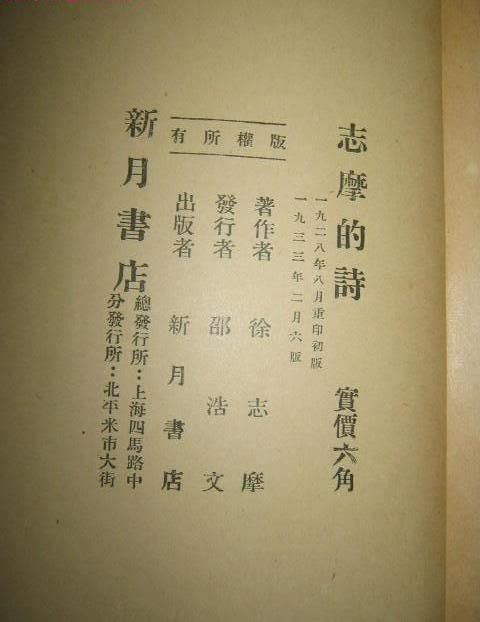 志摩的詩 實價六角
一九二八年八月重印初版
一九三三年二月六版
版權所有
著作者 徐志摩
發行者 邵浩文
出版者 新月書店
新月書店
總發行所：上海四馬路中
分發行所：北平米市大街